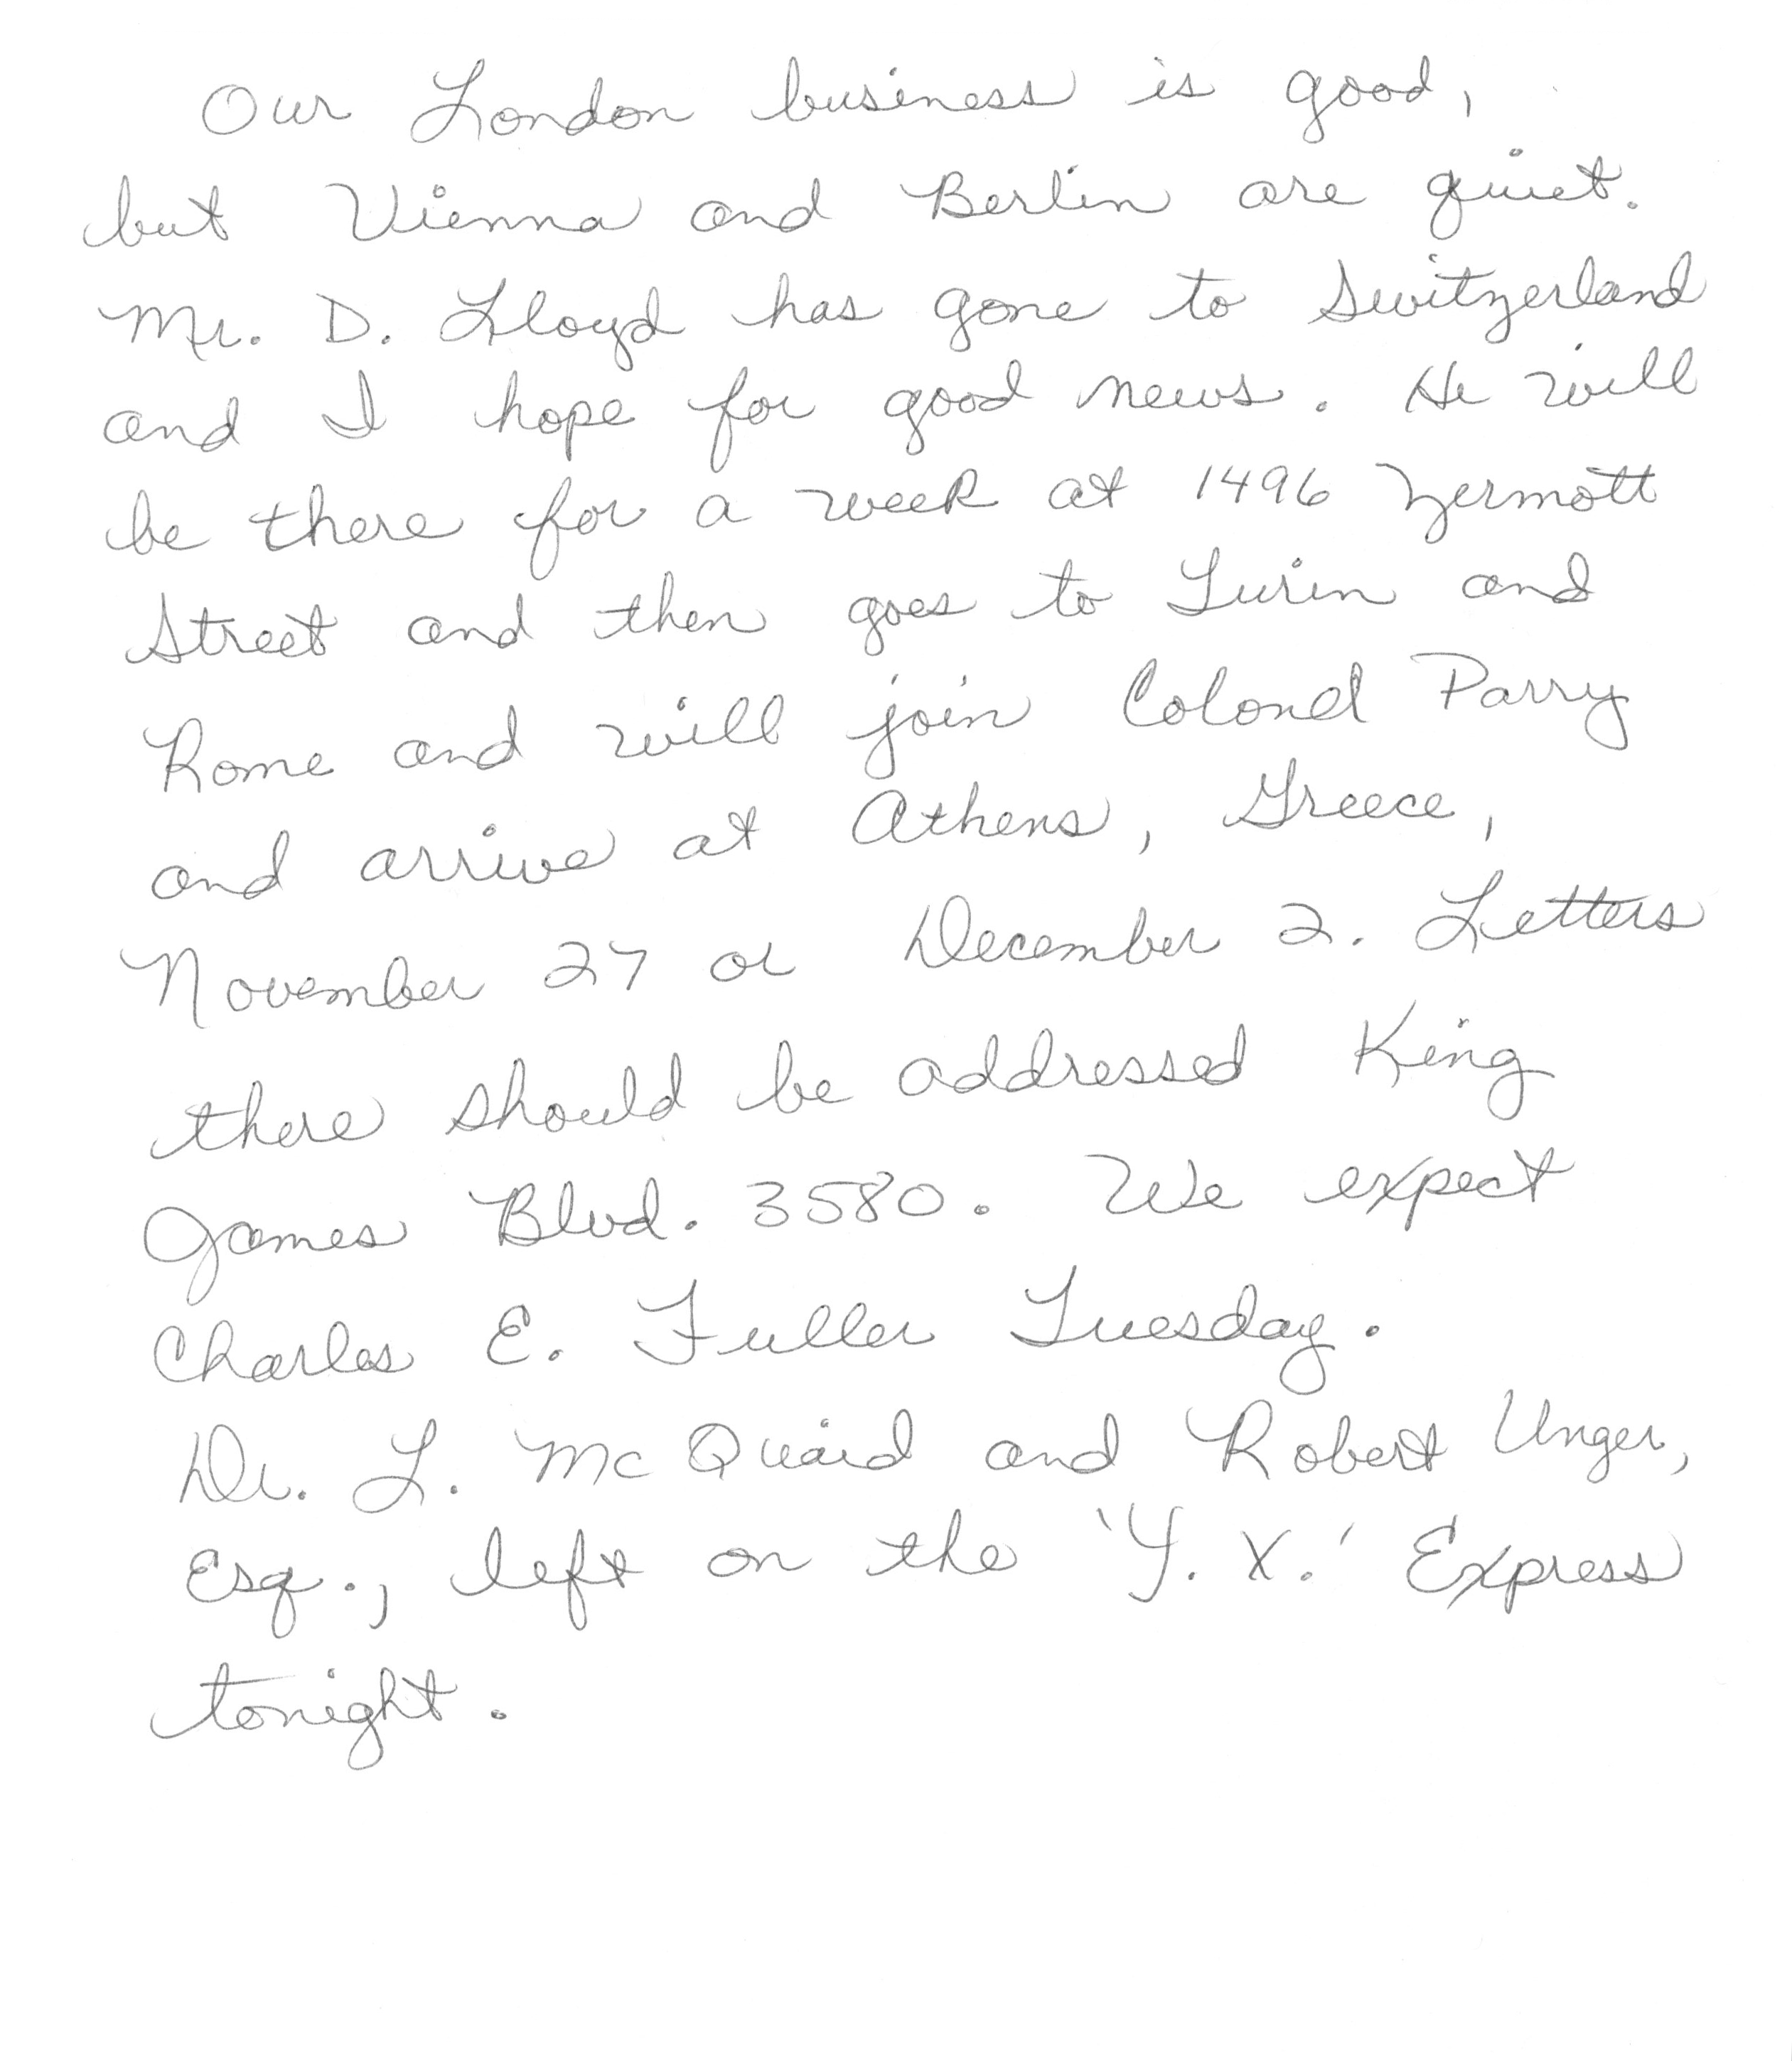 Our London business is good,
but Vienna and Berlin are quiet.
Mr. D. Lloyd has gone to Switzerland
and I hope for good news. He will
be there for a week at 1496 Zermott
Street and then goes to Turin and
Rome and will join Colonel Parry
and arrive at Athens, Greece,
November 27 or December 2. Letters
there should be addressed King
James Blvd. 3580. We expect
Charles E. Fuller Tuesday.
Dr. L. Mc Quaid and Robert Unger,
Esq., left on the 'Y. X.' Express
tonight.